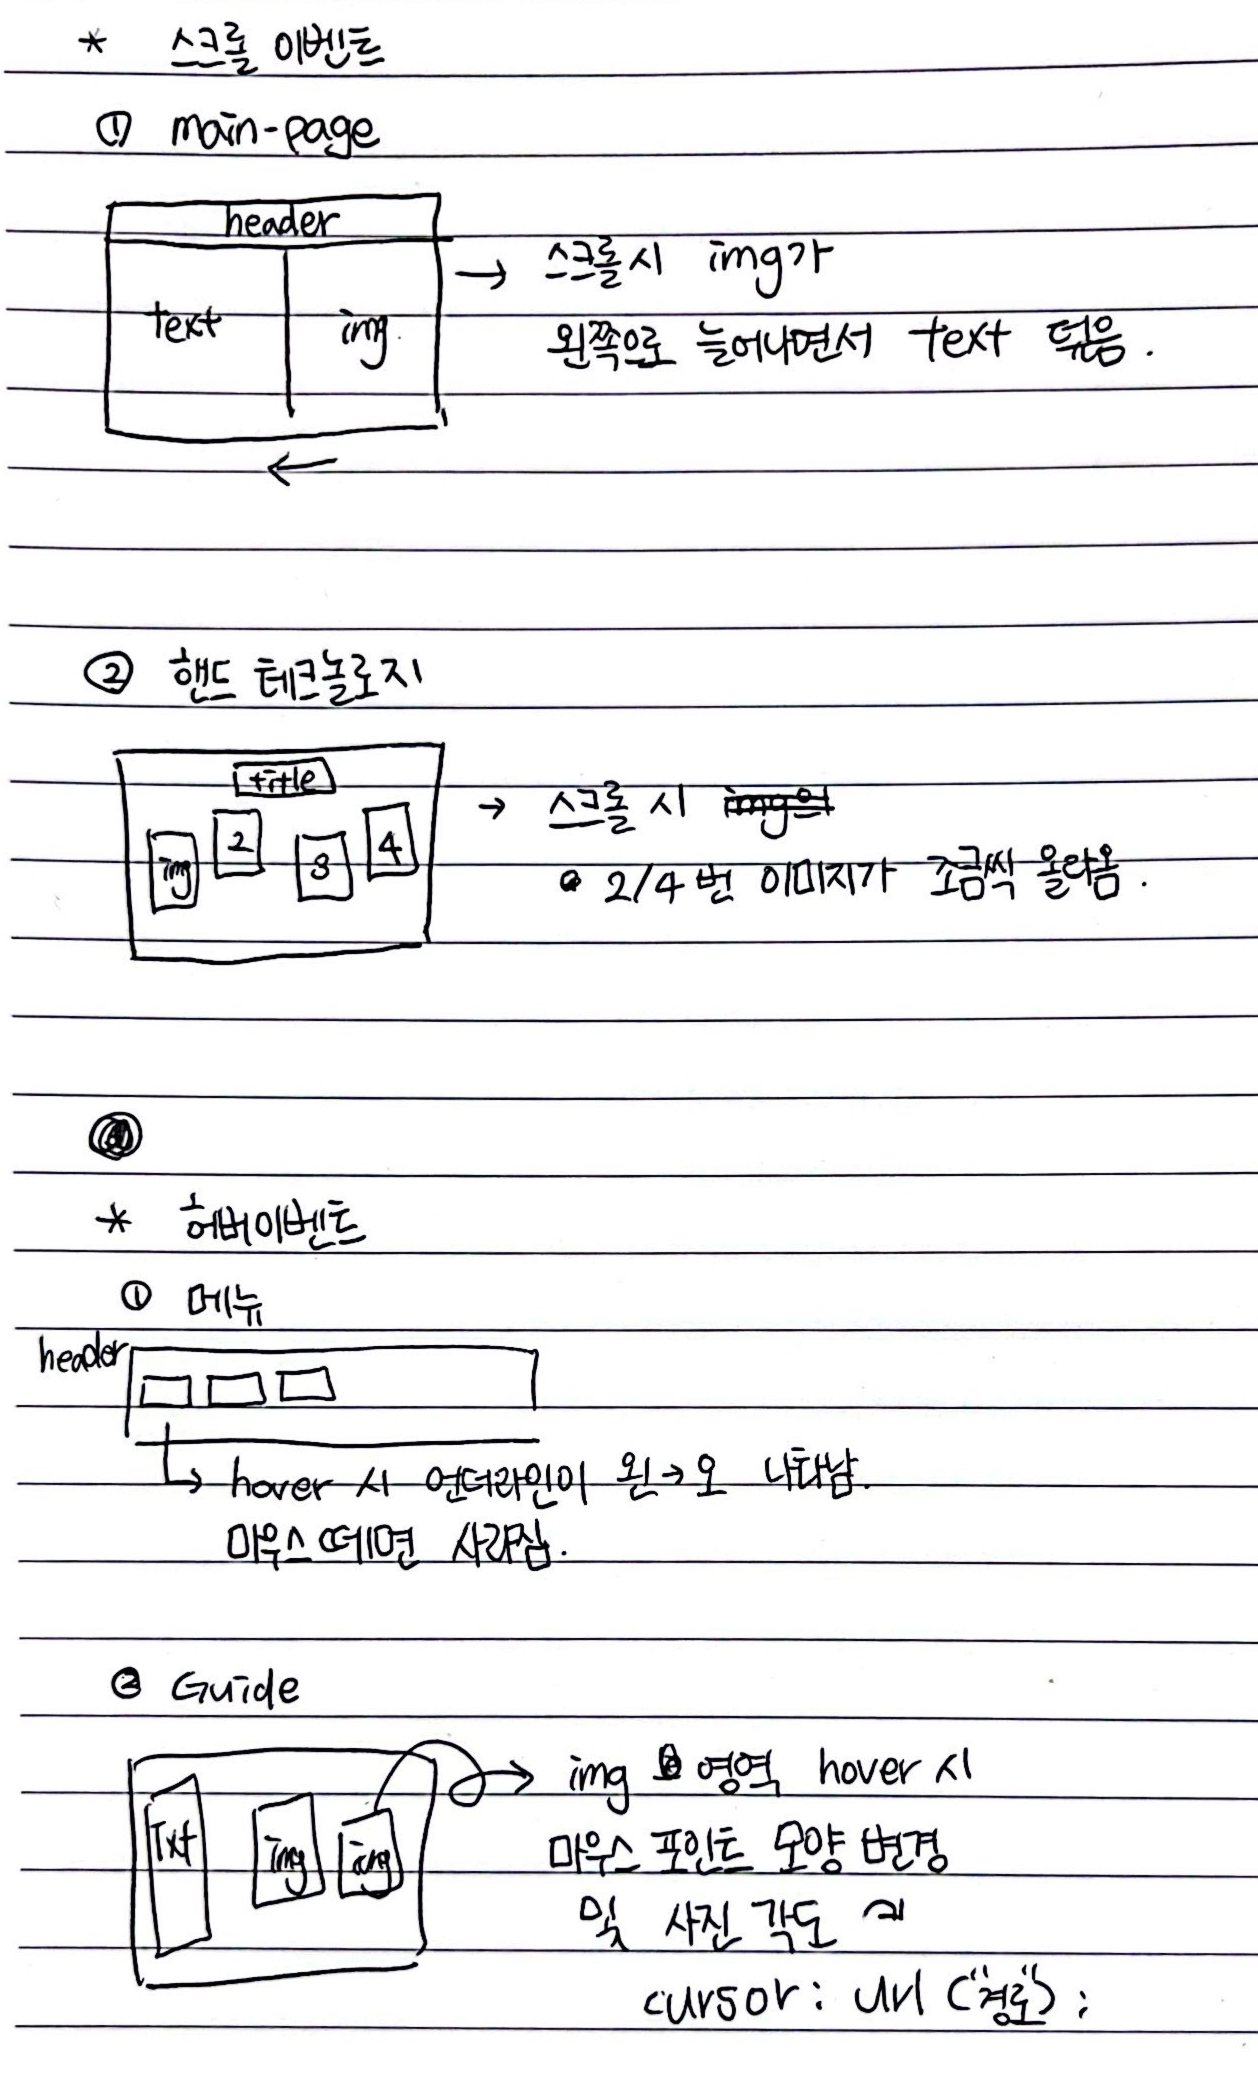 * 스크롤 이벤트
① main-page
header
text img
→ 스크롤시 img가
왼쪽으로 늘어나면서 text 덮음.
←
② 핸드 테크놀로지
title
img 2 3 4
→ 스크롤 시 img의
2/4번 이미지가 조금씩 올라옴.
* 허버이벤트
① 메뉴
header
→ hover 시 언더라인이 왼→오 나타남.
마우스 떼면 사라짐.
② Guide
Txt img img
→ img 영역 hover 시
마우스 포인트 모양 변경
및 사진 각도
cursor: url ("경로");